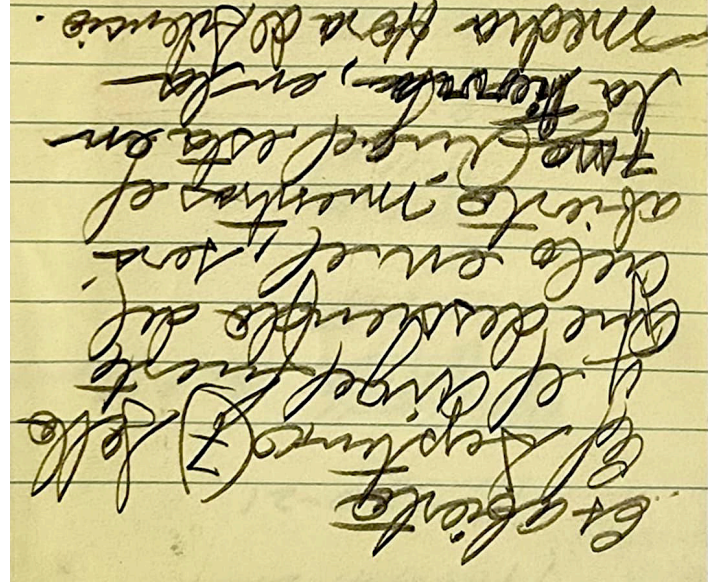 Es abierto
El Septimo (7) Sello
y el angel fuerte
que desciende del
cielo en el, será
abierto mientras el
7mo Angel está en
la tierra, en la
media Hora de silencio.